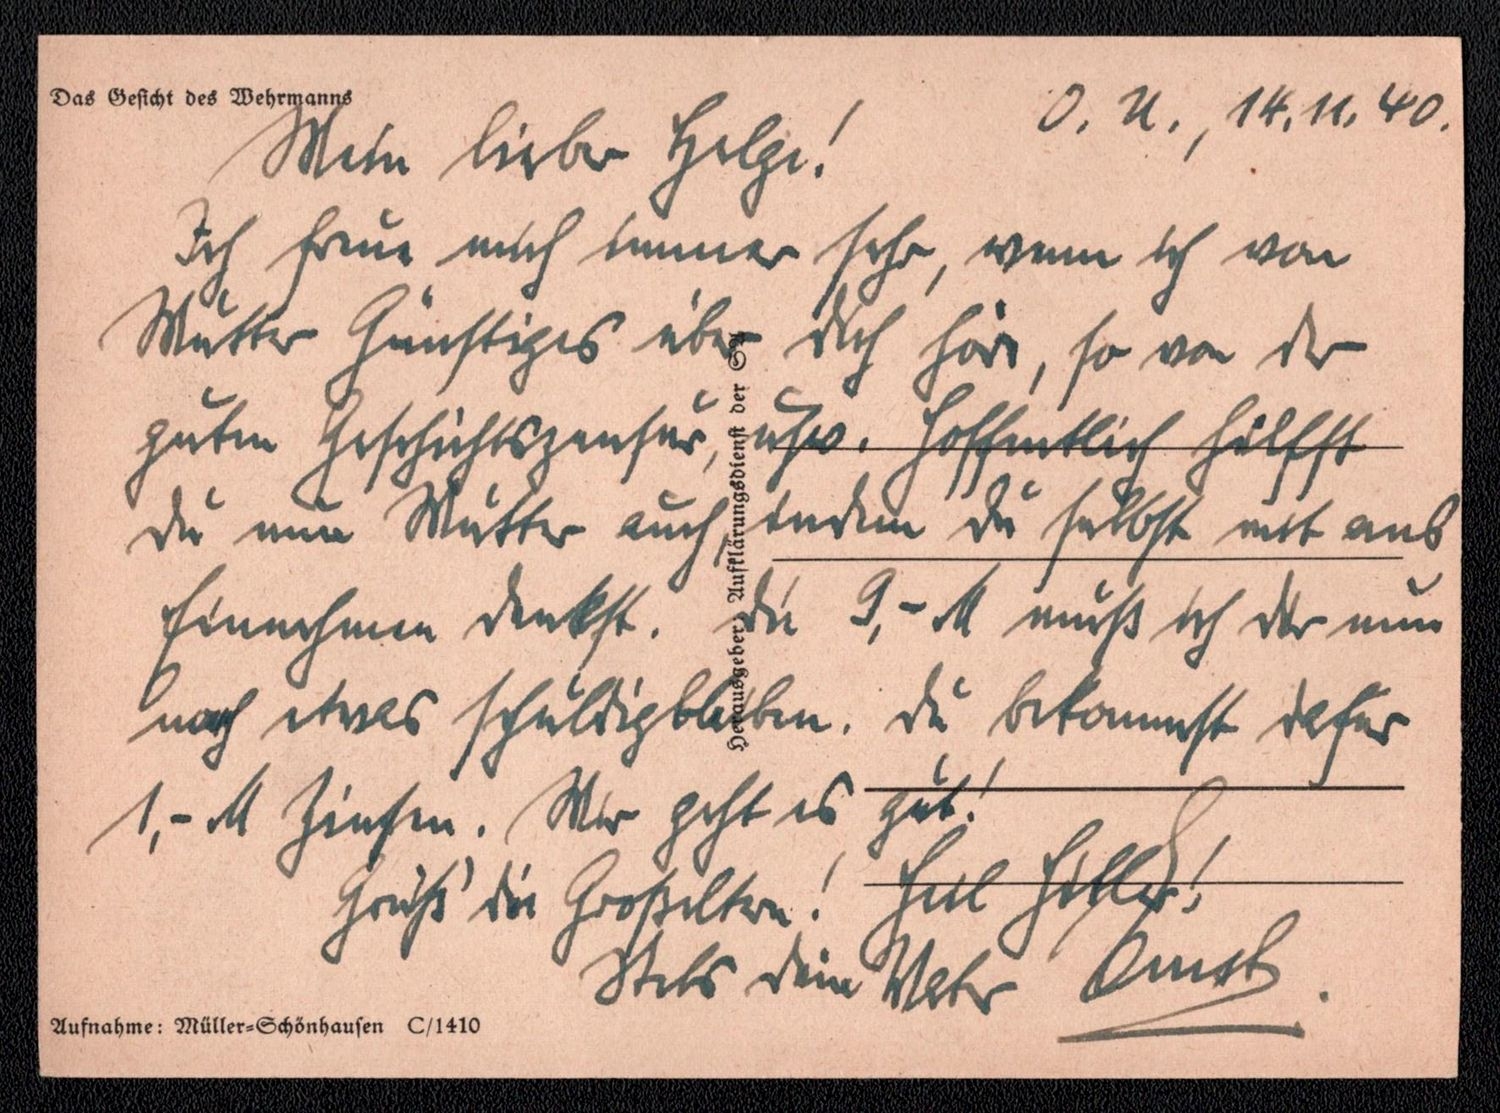 Das Gesicht des Wehrmanns
O. U., 14.11.40.
Mein lieber Helge!
Ich freue mich immer sehr, wenn ich von
Mutter Günstiges über dich höre, so von der
guten Geschichtszensur, usw. Hoffentlich hilfst
du nun Mutter auch, indem du selbst mit ans
Einnehmen denkst. Die 9,- M muß ich dir nun
noch etwas schuldigbleiben. Du bekommst dafür
1,- M Zinsen. Mir geht es gut!
Grüß' die Großeltern! Heil Hitler!
Stets dein Vater
Herausgeber: Aufklärungsdienst der SA
Aufnahme: Müller-Schönhausen C/1410